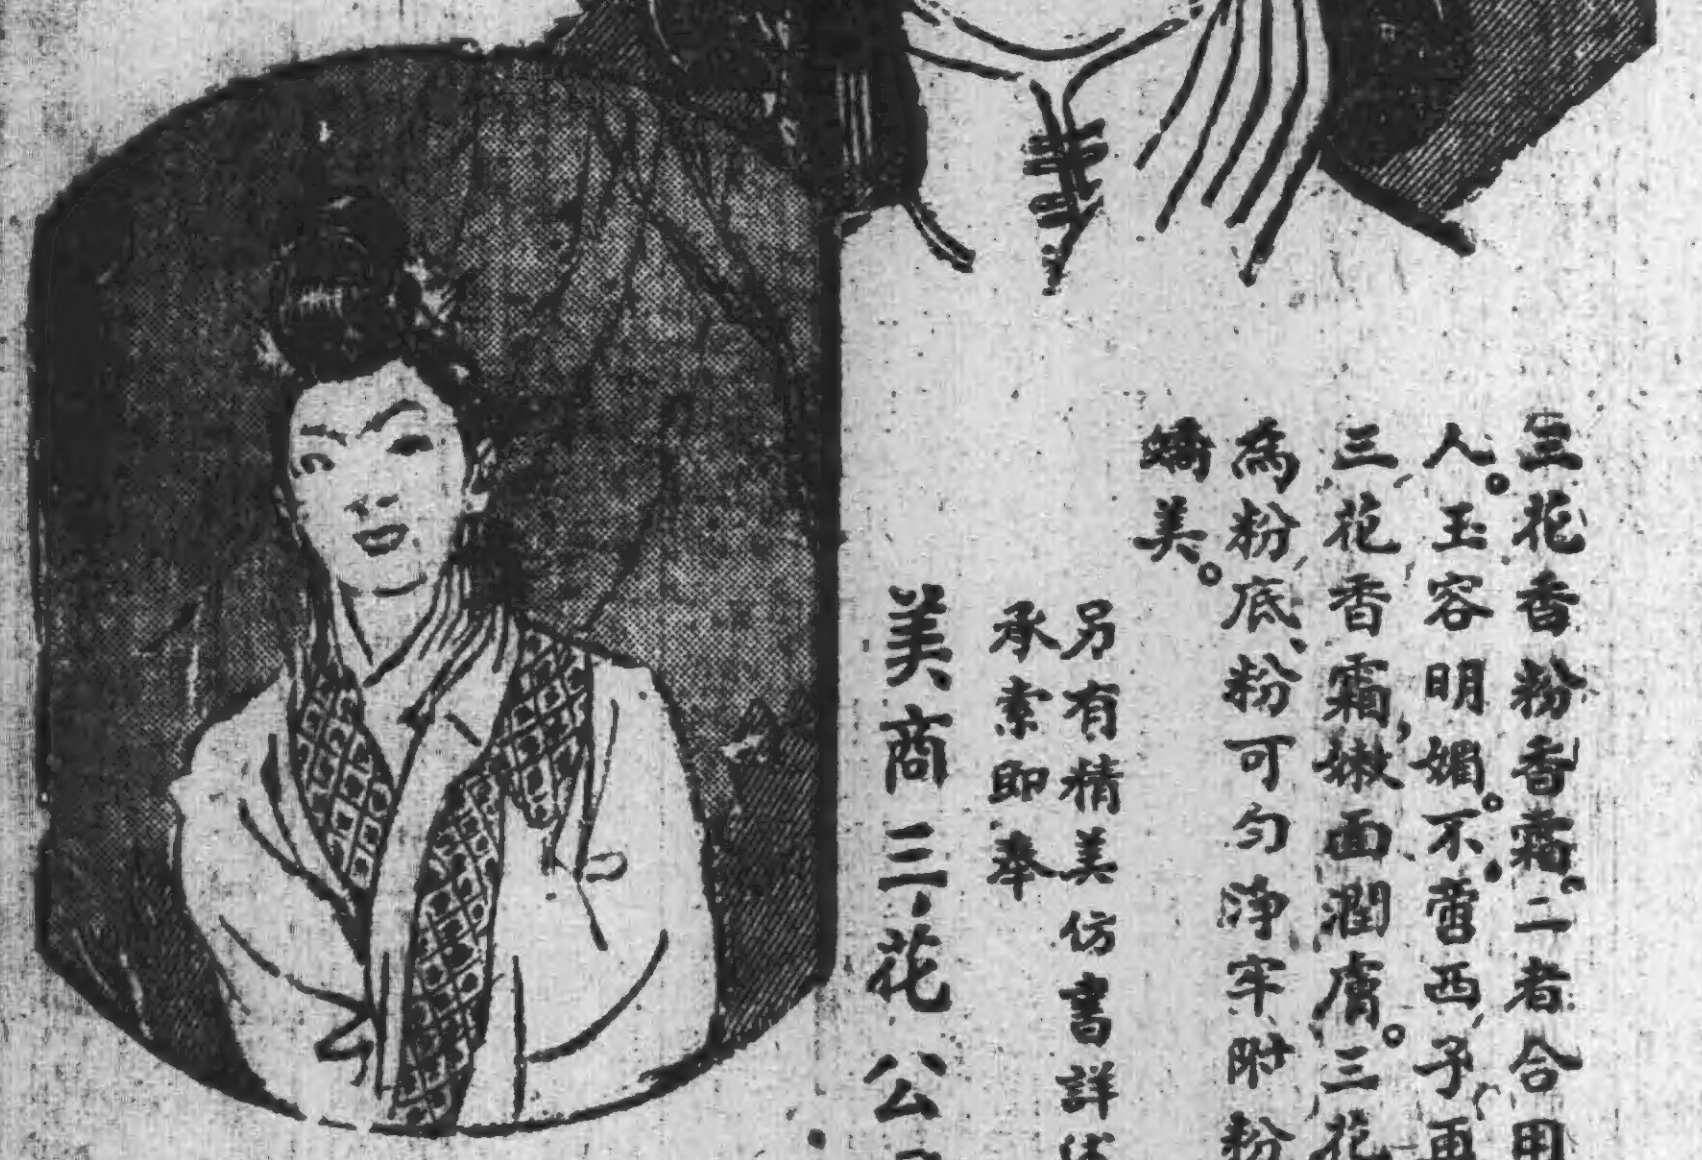 三花香粉香霜。二者合用
人。玉容明媚。不啻西子再
三花香霜，嫩面潤膚。三花
為粉底、粉可勻淨牢附、粉
嬌美。
另有精美仿書詳述
承索即奉
美商三花公